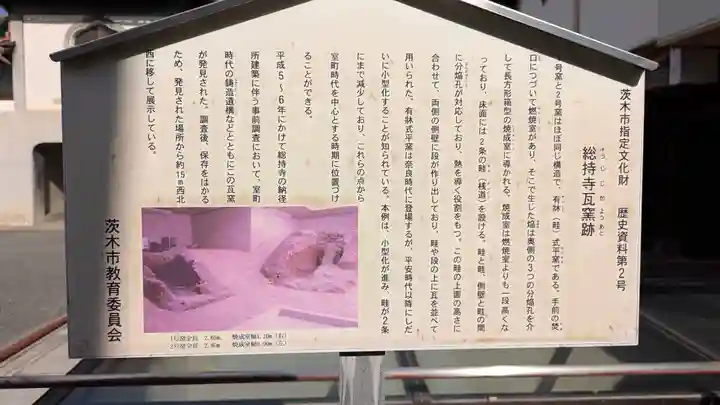 茨木市指定文化財　歴史資料第2号
総持寺瓦窯跡
そうじじがようあと
号窯と2号窯はほぼ同じ構造で、有牀（畦）式平窯である。手前の焚
口につづいて燃焼室があり、そこで生じた焔は奥側の3つの分焔孔を介
して長方形箱型の焼成室に導かれる。焼成室は燃焼室よりも一段高くな
っており、床面には2条の畦（桟道）を設ける。畦と畦、側壁と畦の間
に分焔孔が対応しており、熱を導く役割をもつ。この畦の上面の高さに
合わせて、両側の側壁に段が作り出しており、畦や段の上に瓦を並べて
用いられた。有牀式平窯は奈良時代に登場するが、平安時代以降にしだ
いに小型化することが知られている。本例は、小型化が進み、畦が2条
にまで減少しており、これらの点から
室町時代を中心とする時期に位置づけ
ることができる。
平成5～6年にかけて総持寺の納径
所建築に伴う事前調査において、室町
時代の鋳造遺構などとともにこの瓦窯
が発見された。調査後、保存をはかる
ため、発見された場所から約15m西北
西に移して展示している。
茨木市教育委員会
1号窯全長　2.80m、焼成室幅1.10m（右）
2号窯全長　2.95m　焼成室幅0.90m（左）